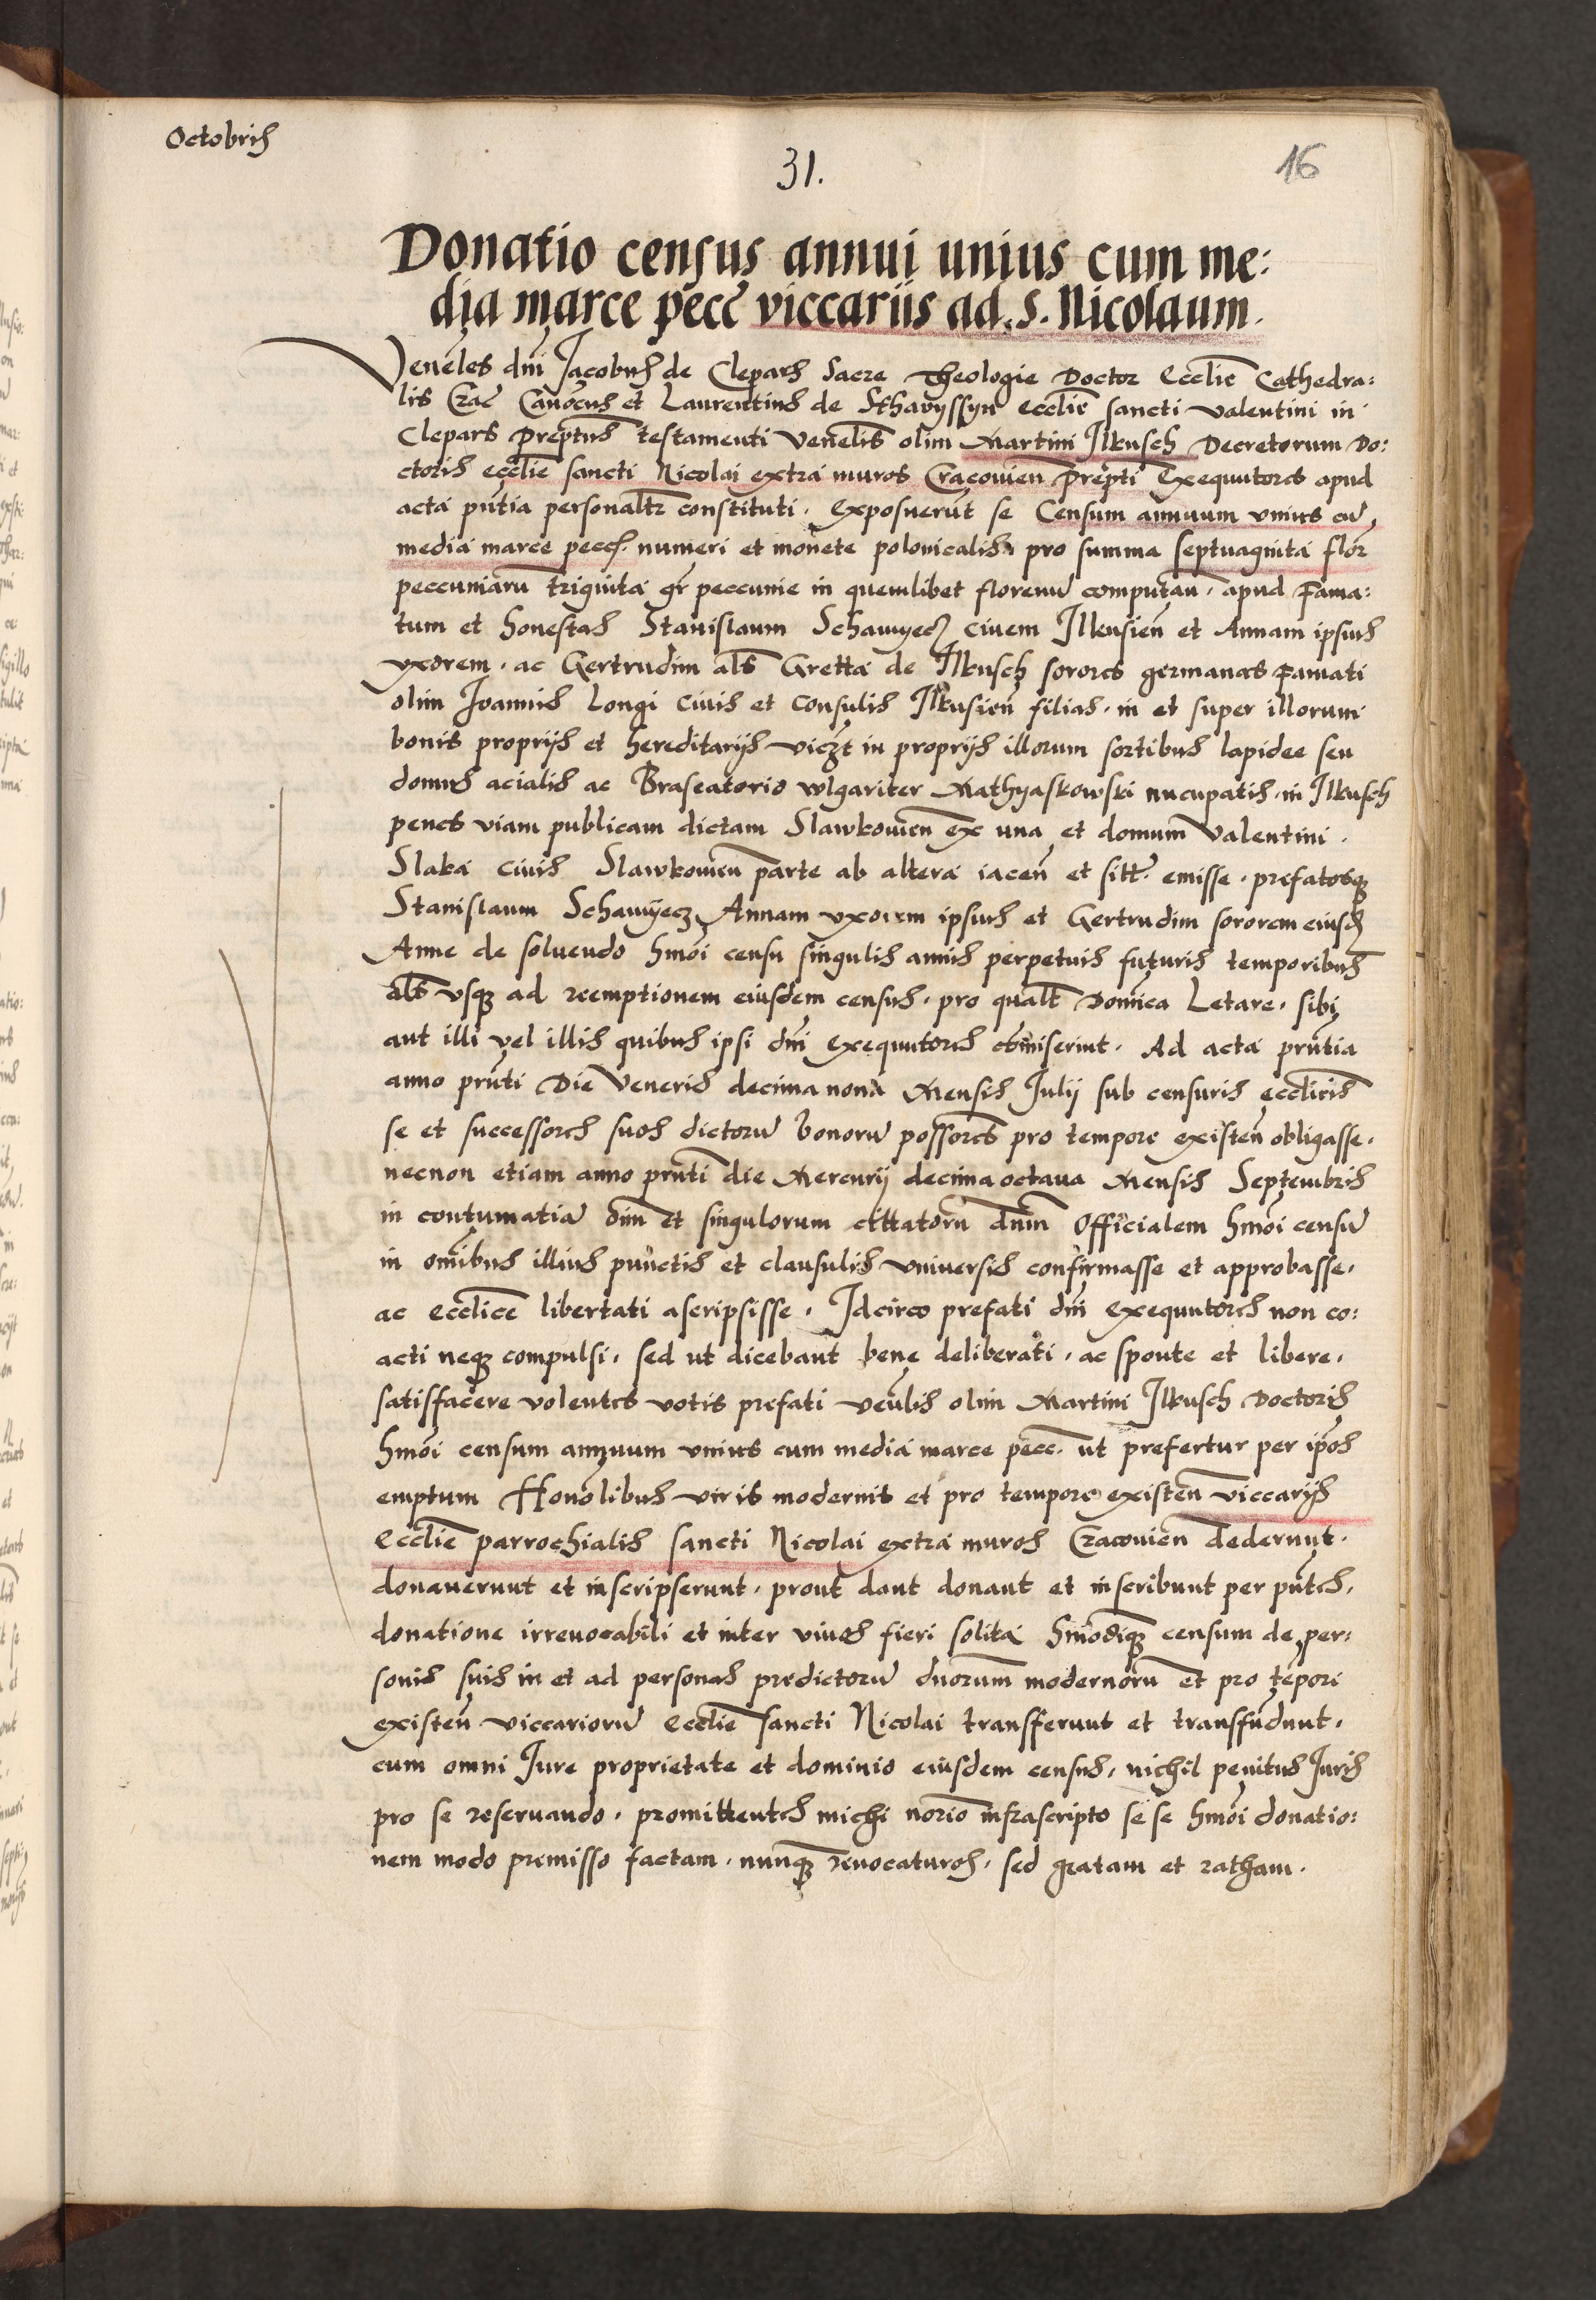 Octobris
31.
16
Donatio census annui unius cum me:
dia marce pecc̄ viccariis ad. S. Nicolaum.
Venēles dn̄i Jacobus de Clepars Sacre Theologie Doctor Eccliē Cathedra:
lis Crac̄ Canōcus et Laurentius de Sthavyssyn ecclīe sancti Valentini in
Clepars prēptus testamenti venēlis olim Martini Ilkusch Decretorum Do:
ctoris ecclīe sancti Nicolai extra muros Cracovien̄ prēpti Exequutores apud
acta pn̄tia personalt̄r constituti. Exposuerūt se Censum annuum unius cū
media marce pecc. numeri et monete polonicalis pro summa septuaginta flor̄
peccuniarū triginta gr̄ peccunie in quemlibet florenū computan̄. apud Fama:
tum et honestas Stanislaum Schawyecz Civem Ilkusien̄ et Annam ipsius
uxorem. ac Gertrudim als̄ Gretta de Ilkusch sorores germanas Famati
olim Joannis Longi Civis et Consulis Ilkusien̄ filias. in et super illorum
bonis proprijs et hereditarijs viczt in proprijs illorum sortibus lapidee seu
domus acialis ac Braseatorio vlgariter Mathyaskowski nucupatis. in Ilkusch
penes viam publicam dictam Slawkovien̄ ex una et domum Valentini.
Slaka Civis Slawkovien̄ parte ab altera iacen̄ et sitt̄. emisse. prefatosq
Stanislaum Schawyecz Annam uxorem ipsius et Gertrudim sororem eiusd
Anne de solvendo hmōi censu singulis annis perpetuis futuris temporibus
als̄ usq ad reemptionem eiusdem census. pro qualt̄ Domīca Letare. sibi
aut illi vel illis quibus ipsi dn̄i exequutores cōmiserint. Ad acta prn̄tia
anno prn̄ti Die Veneris decima nona Mensis Julij sub censuris ecclīcis
se et successores suos dictorū bonorū possores pro tempore existen̄ obligasse.
necnon etiam anno prn̄ti die Mercurij decima octava Mensis Septembris
in contumatiā oīm et singulorum cittatorū dn̄m Officialem hmōi censū
in omībus illius punctis et clausulis universis confirmasse et approbasse.
ac ecclīce libertati ascripsisse. Idcirco prefati dn̄i exequutores non co:
acti neq compulsi. sed ut dicebant bene deliberati. ac sponte et libere.
satisfacere volentes votis prefati venēbis olim Martini Ilkusch Doctoris
hmōi censum annuum unius cum media marce pecc̄. ut prefertur per ip̄os
emptum Honōlibus viris modernis et pro tempore existen̄ viccarijs
Ecclīe parrochialis sancti Nicolai extra muros Cracovien̄ dederunt.
donaverunt et inscripserunt. prout dant donant et inscribunt per pn̄tes.
donatione irrevocabili et inter vivos fieri solita hmōdiq censum de per:
sonis suis in et ad personas predictorū dnorum modernorū et pro tēpori
existen̄ viccariorū Ecclīe sancti Nicolai transferunt et transfūdunt.
cum omni Jure proprietate et dominio eiusdem census. nichil penitus Juris
pro se reservando. promittentes michi nor̄io infrascripto se se hmōi donatio:
nem modo premisso factam. nunq revocaturos. sed gratam et ratham.